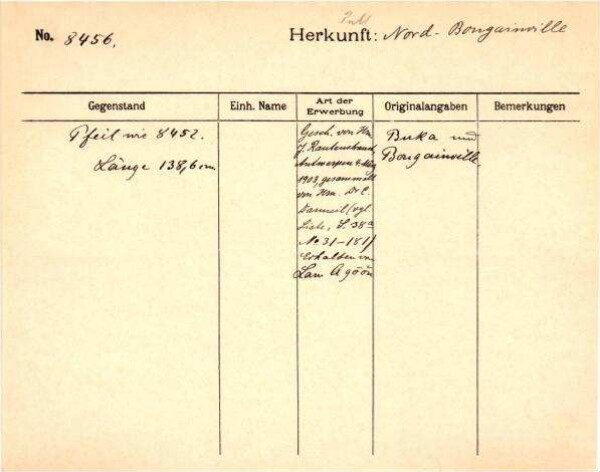 No. 8456.
Herkunft: Nord-Bougainville
Gegenstand Einh. Name Art der Erwerbung Originalangaben Bemerkungen
Pfeil wie 8452.
Länge 138,6 cm.
Gesch. von Hrn.
J. Rautenstrauch,
Antwerpen
1903, gesammelt
von Hrn. Dr. C.
Danneil (vgl.
Liste, S. 38a
No 31-181)
Erhalten von
Lau Agöön
Buka und
Bougainville.